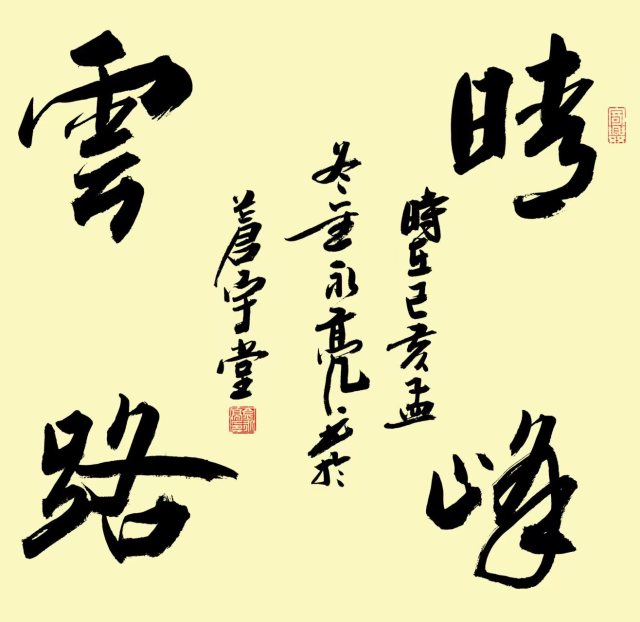 晴峰
雲路
時在己亥孟
冬金永亮書於
蒼宇堂